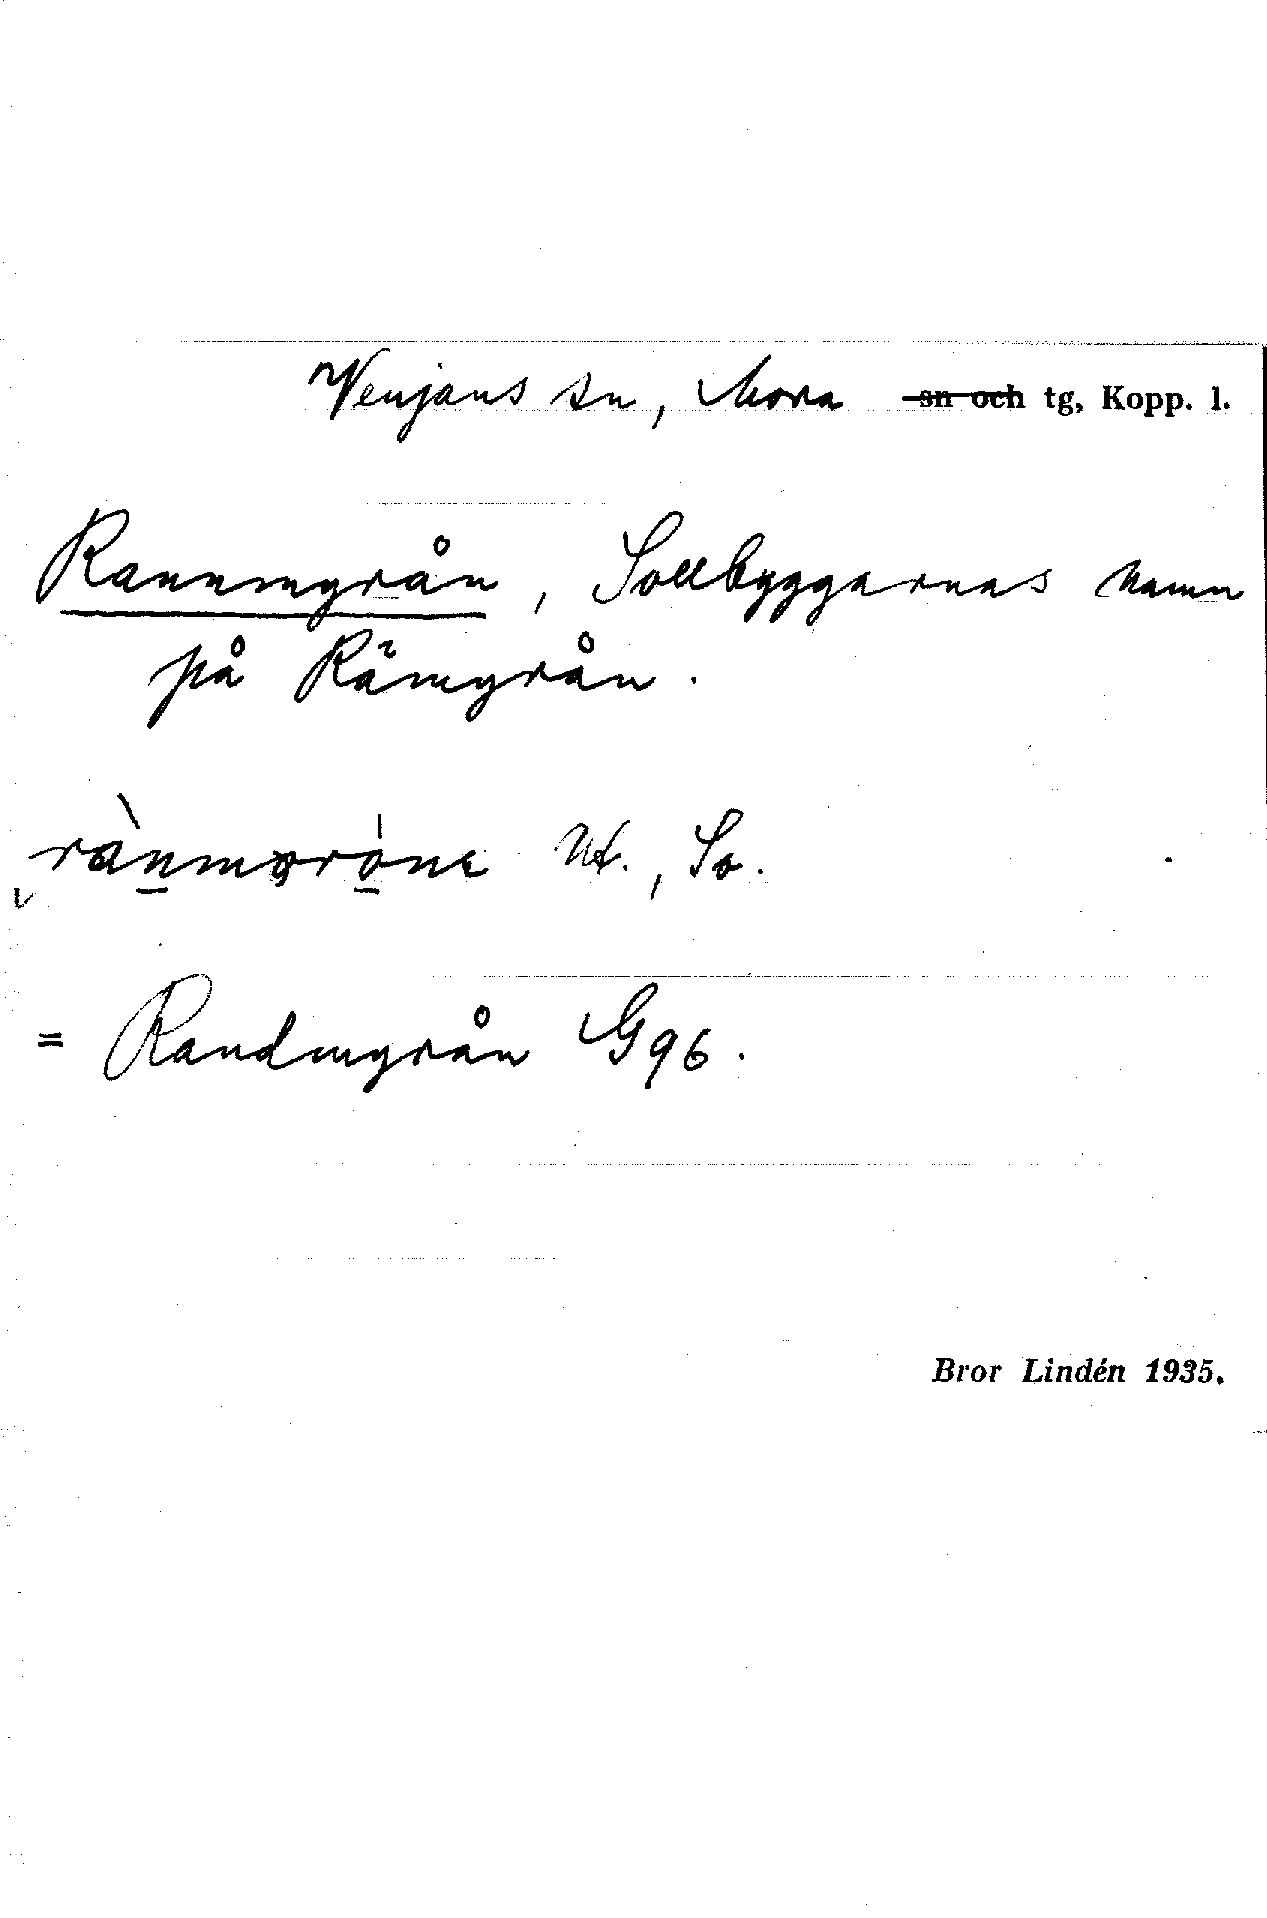 Venjans sn, Mora sn och tg, Kopp. l.
Rannmyrån, Sollbyggarnas namn
på Rämyrån.
= Randmyrån G96.
Bror Lindén 1935.